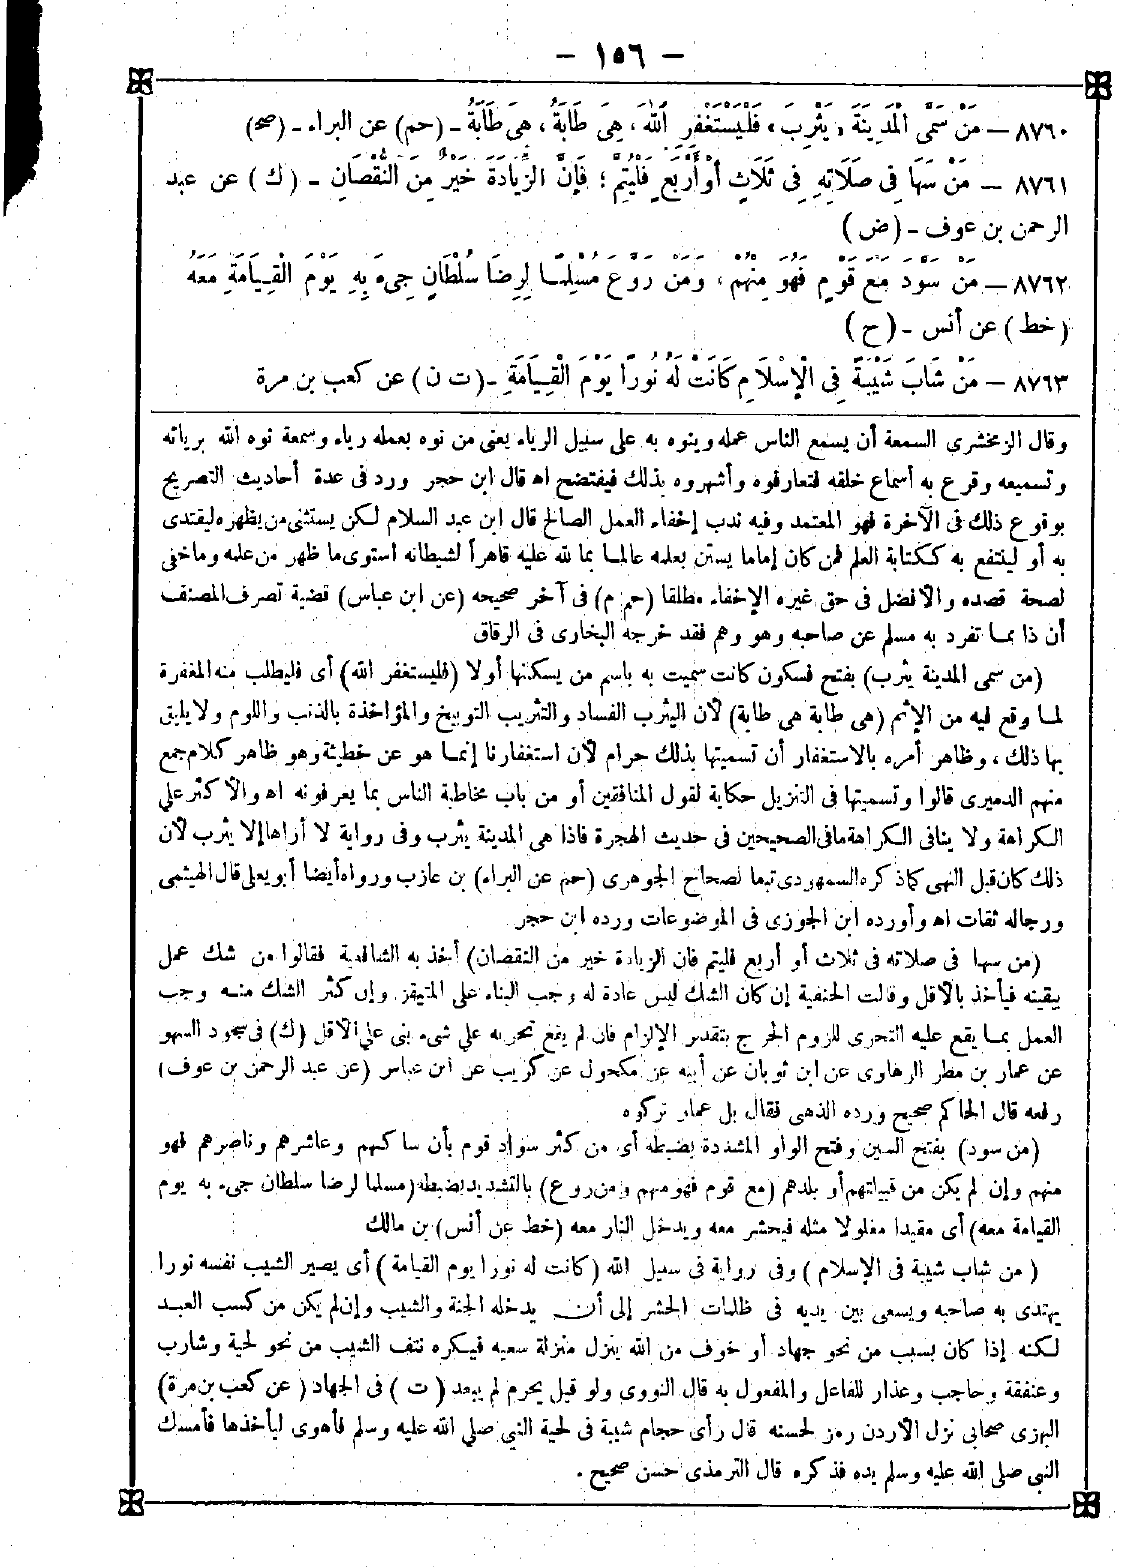 – ١٥٦ –
٨٧٦٠ – مَنْ سَمَّى الْمَدِينَةَ «يَثْرِبَ» فَلْيَسْتَغْفِرِ اللّٰهَ، هِيَ طَابَةُ، هِيَ طَابَةُ – (حم) عن البراء – (صح)
٨٧٦١ – مَنْ سَهَا فِي صَلَاتِهِ فِي ثَلَاثٍ أَوْ أَرْبَعٍ فَلْيُتِمَّ؛ فَإِنَّ الزِّيَادَةَ خَيْرٌ مِنَ النُّقْصَانِ – (ك) عن عبد
الرحمن بن عوف – (ض)
٨٧٦٢ – مَنْ سَوَّدَ مَعَ قَوْمٍ فَهُوَ مِنْهُمْ، وَمَنْ رَوَّعَ مُسْلِمًا لِرِضَا سُلْطَانٍ جِيءَ بِهِ يَوْمَ الْقِيَامَةِ مَعَهُ
(خط) عن أنس – (ح)
٨٧٦٣ – مَنْ شَابَ شَيْبَةً فِي الْإِسْلَامِ كَانَتْ لَهُ نُورًا يَوْمَ الْقِيَامَةِ – (ت ن) عن كعب بن مرة
وقال الزمخشرى السمعة أن يسمع الناس عمله وينوه به على سبيل الرياء يعنى من نوه بعمله رياء وسمعة نوه الله بريائه
وتسميعه وقرع به أسماع خلقه فتعارفوه وأشهروه بذلك فيفتضح اه قال ابن حجر ورد فى عدة أحاديث التصريح
بوقوع ذلك فى الآخرة فهو المعتمد وفيه ندب إخفاء العمل الصالح قال ابن عبد السلام لكن يستثنى من يظهره ليقتدى
به أو لينتفع به ككتابة العلم فمن كان إماما يستن بعلمه عالما بما لله عليه قاهراً لشيطانه استوى ما ظهر من علمه وما خفى
لصحة قصده والأفضل فى حق غيره الإخفاء مطلقا (حم م) فى آخر صحيحه (عن ابن عباس) قضية تصرف المصنف
أن ذا مما تفرد به مسلم عن صاحبه وهو وهم فقد خرجه البخارى فى الرقاق
(من سمى المدينة يثرب) بفتح فسكون كانت سميت به باسم من يسكنها أولا (فليستغفر الله) أى فليطلب منه المغفرة
لما وقع فيه من الإثم (هى طابة هى طابة) لأن اليثرب الفساد والتثريب التوبيخ والمؤاخذة بالذنب واللوم ولا يليق
بها ذلك، وظاهر أمره بالاستغفار أن تسميتها بذلك حرام لأن استغفارنا إنما هو عن خطيئة وهو ظاهر كلام جمع
منهم الدميرى قالوا وتسميتها فى التنزيل حكاية لقول المنافقين أو من باب مخاطبة الناس بما يعرفونه اه والأكثر على
الكراهة ولا ينافى الكراهة ما فى الصحيحين فى حديث الهجرة فاذا هى المدينة يثرب وفى رواية لا أراها إلا يثرب لأن
ذلك كان قبل النهى كما ذكره السمهودى تبعا لصحاح الجوهرى (حم عن البراء) بن عازب ورواه أيضا أبو يعلى قال الهيثمى
ورجاله ثقات اه وأورده ابن الجوزى فى الموضوعات ورده ابن حجر
(من سها فى صلاته فى ثلاث أو أربع فليتم فان الزيادة خير من النقصان) أخذ به الشافعية فقالوا من شك عمل
بيقينه فيأخذ بالأقل وقالت الحنفية إن كان الشك ليس عادة له وجب البناء على المتيقن وإن كثر الشك منه وجب
العمل بما يقع عليه التحرى للزوم الحرج بتقدير الإلزام فان لم يقع تحريه على شىء بنى على الأقل (ك) فى سجود السهو
عن عمار بن مطر الرهاوى عن ابن ثوبان عن أبيه عن مكحول عن كريب عن ابن عباس (عن عبد الرحمن بن عوف)
رفعه قال الحاكم صحيح ورده الذهبى فقال بل عمار تركوه
(من سود) بفتح السين وفتح الواو المشددة بضبطه أى من كثر سواد قوم بأن ساكنهم وعاشرهم وناصرهم فهو
منهم وإن لم يكن من قبيلتهم أو بلدهم (مع قوم فهو منهم ومن روع) بالتشديد بضبطه (مسلما لرضا سلطان جىء به يوم
القيامة معه) أى مقيدا مغلولا مثله فيحشر معه ويدخل النار معه (خط عن أنس) بن مالك
(من شاب شيبة فى الإسلام) وفى رواية فى سبيل الله (كانت له نورا يوم القيامة) أى يصير الشيب نفسه نورا
يهتدى به صاحبه ويسعى بين يديه فى ظلمات الحشر إلى أن يدخله الجنة والشيب وإن لم يكن من كسب العبد
لكنه إذا كان بسبب من نحو جهاد أو خوف من الله ينزل منزلة سعيه فيكره نتف الشيب من نحو لحية وشارب
وعنفقة وحاجب وعذار للفاعل والمفعول به قال النووى ولو قيل يحرم لم يبعد (ت) فى الجهاد (عن كعب بن مرة)
البهزى صحابى نزل الأردن رمز لحسنه قال رأى حجام شيبة فى لحية النبى صلى الله عليه وسلم فأهوى ليأخذها فأمسك
النبى صلى الله عليه وسلم يده فذكره قال الترمذى حسن صحيح.